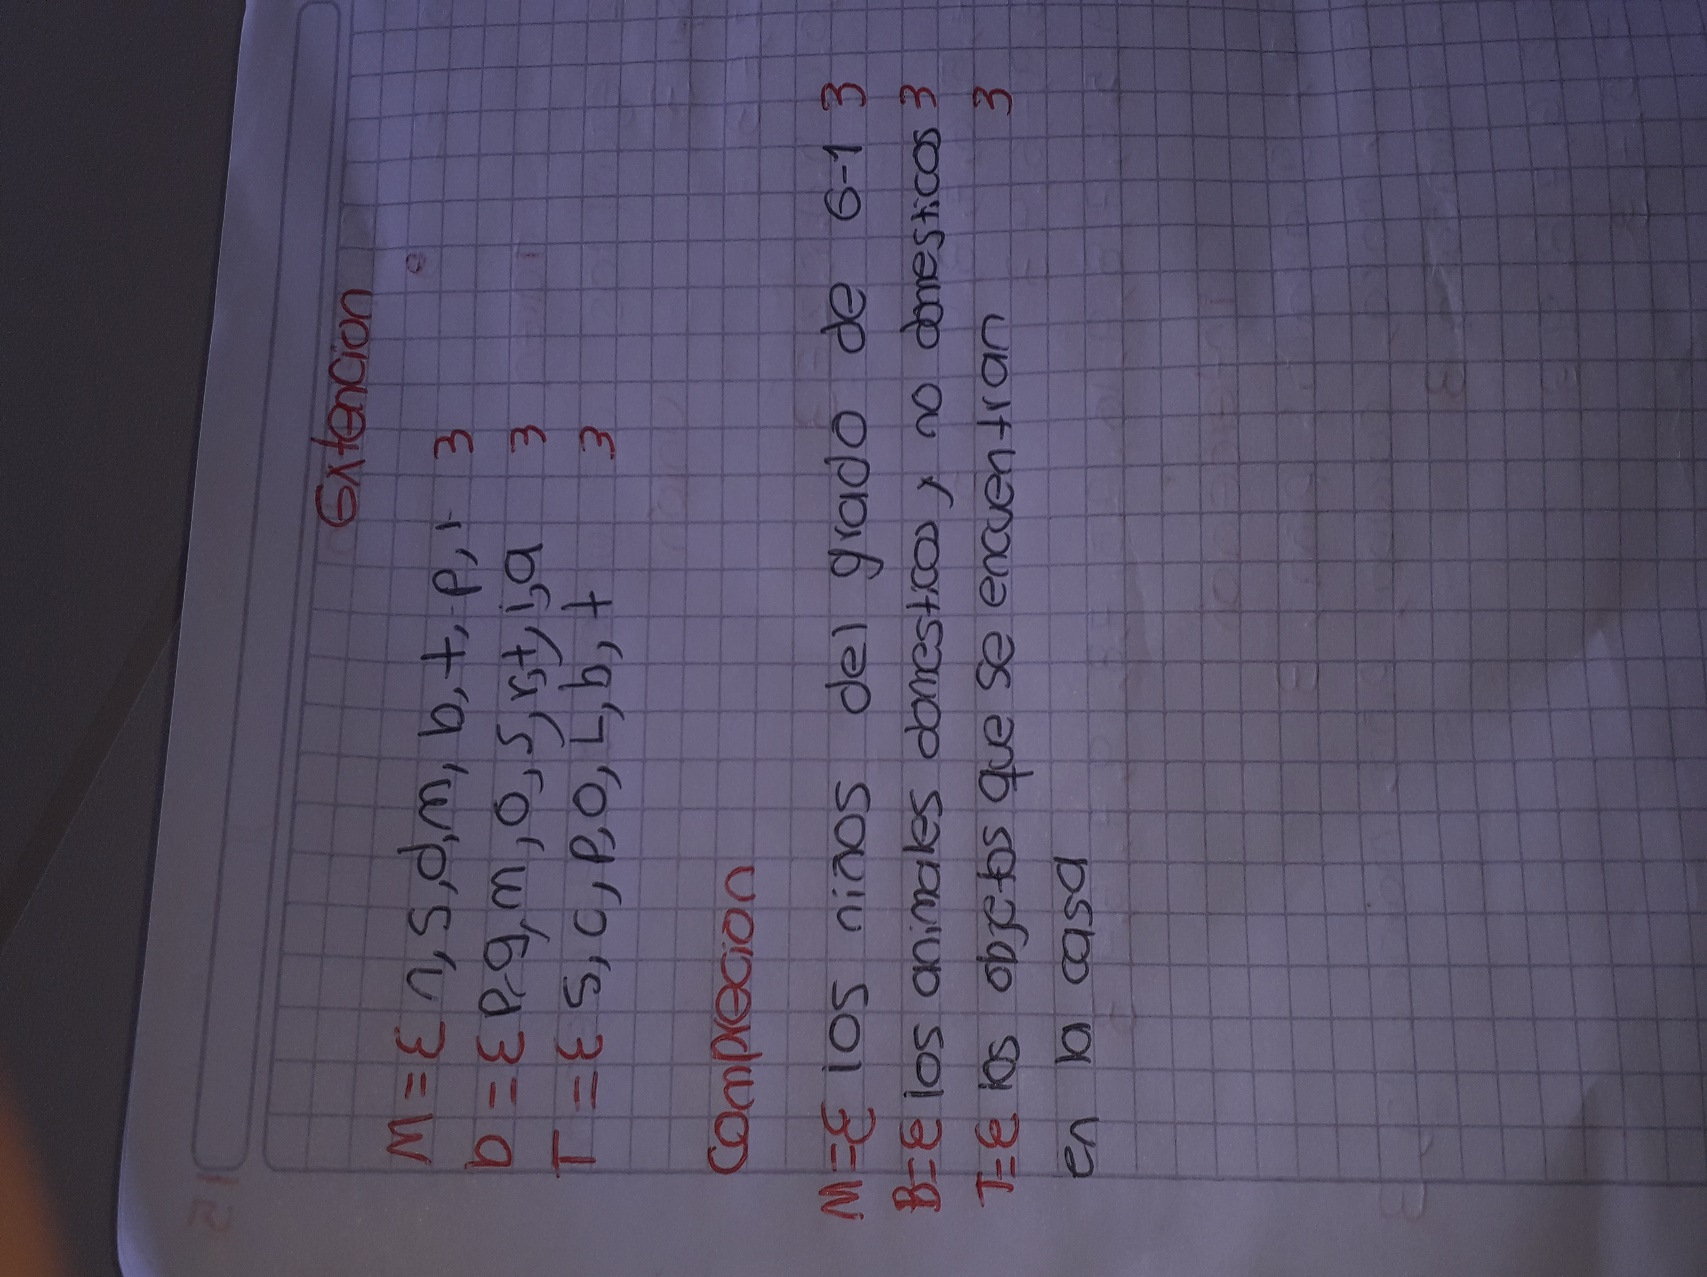 Extencion
M = { n, s, d, m, b, t, p, i }
b = { p, g, m, o, s, r, t, j, a }
T = { s, c, p, o, L, b, t }
Comprecion
M={ los niños del grado de 6-1 }
B={ los animales domesticos, no domesticos }
T={ los objetos que se encuentran }
en la casa